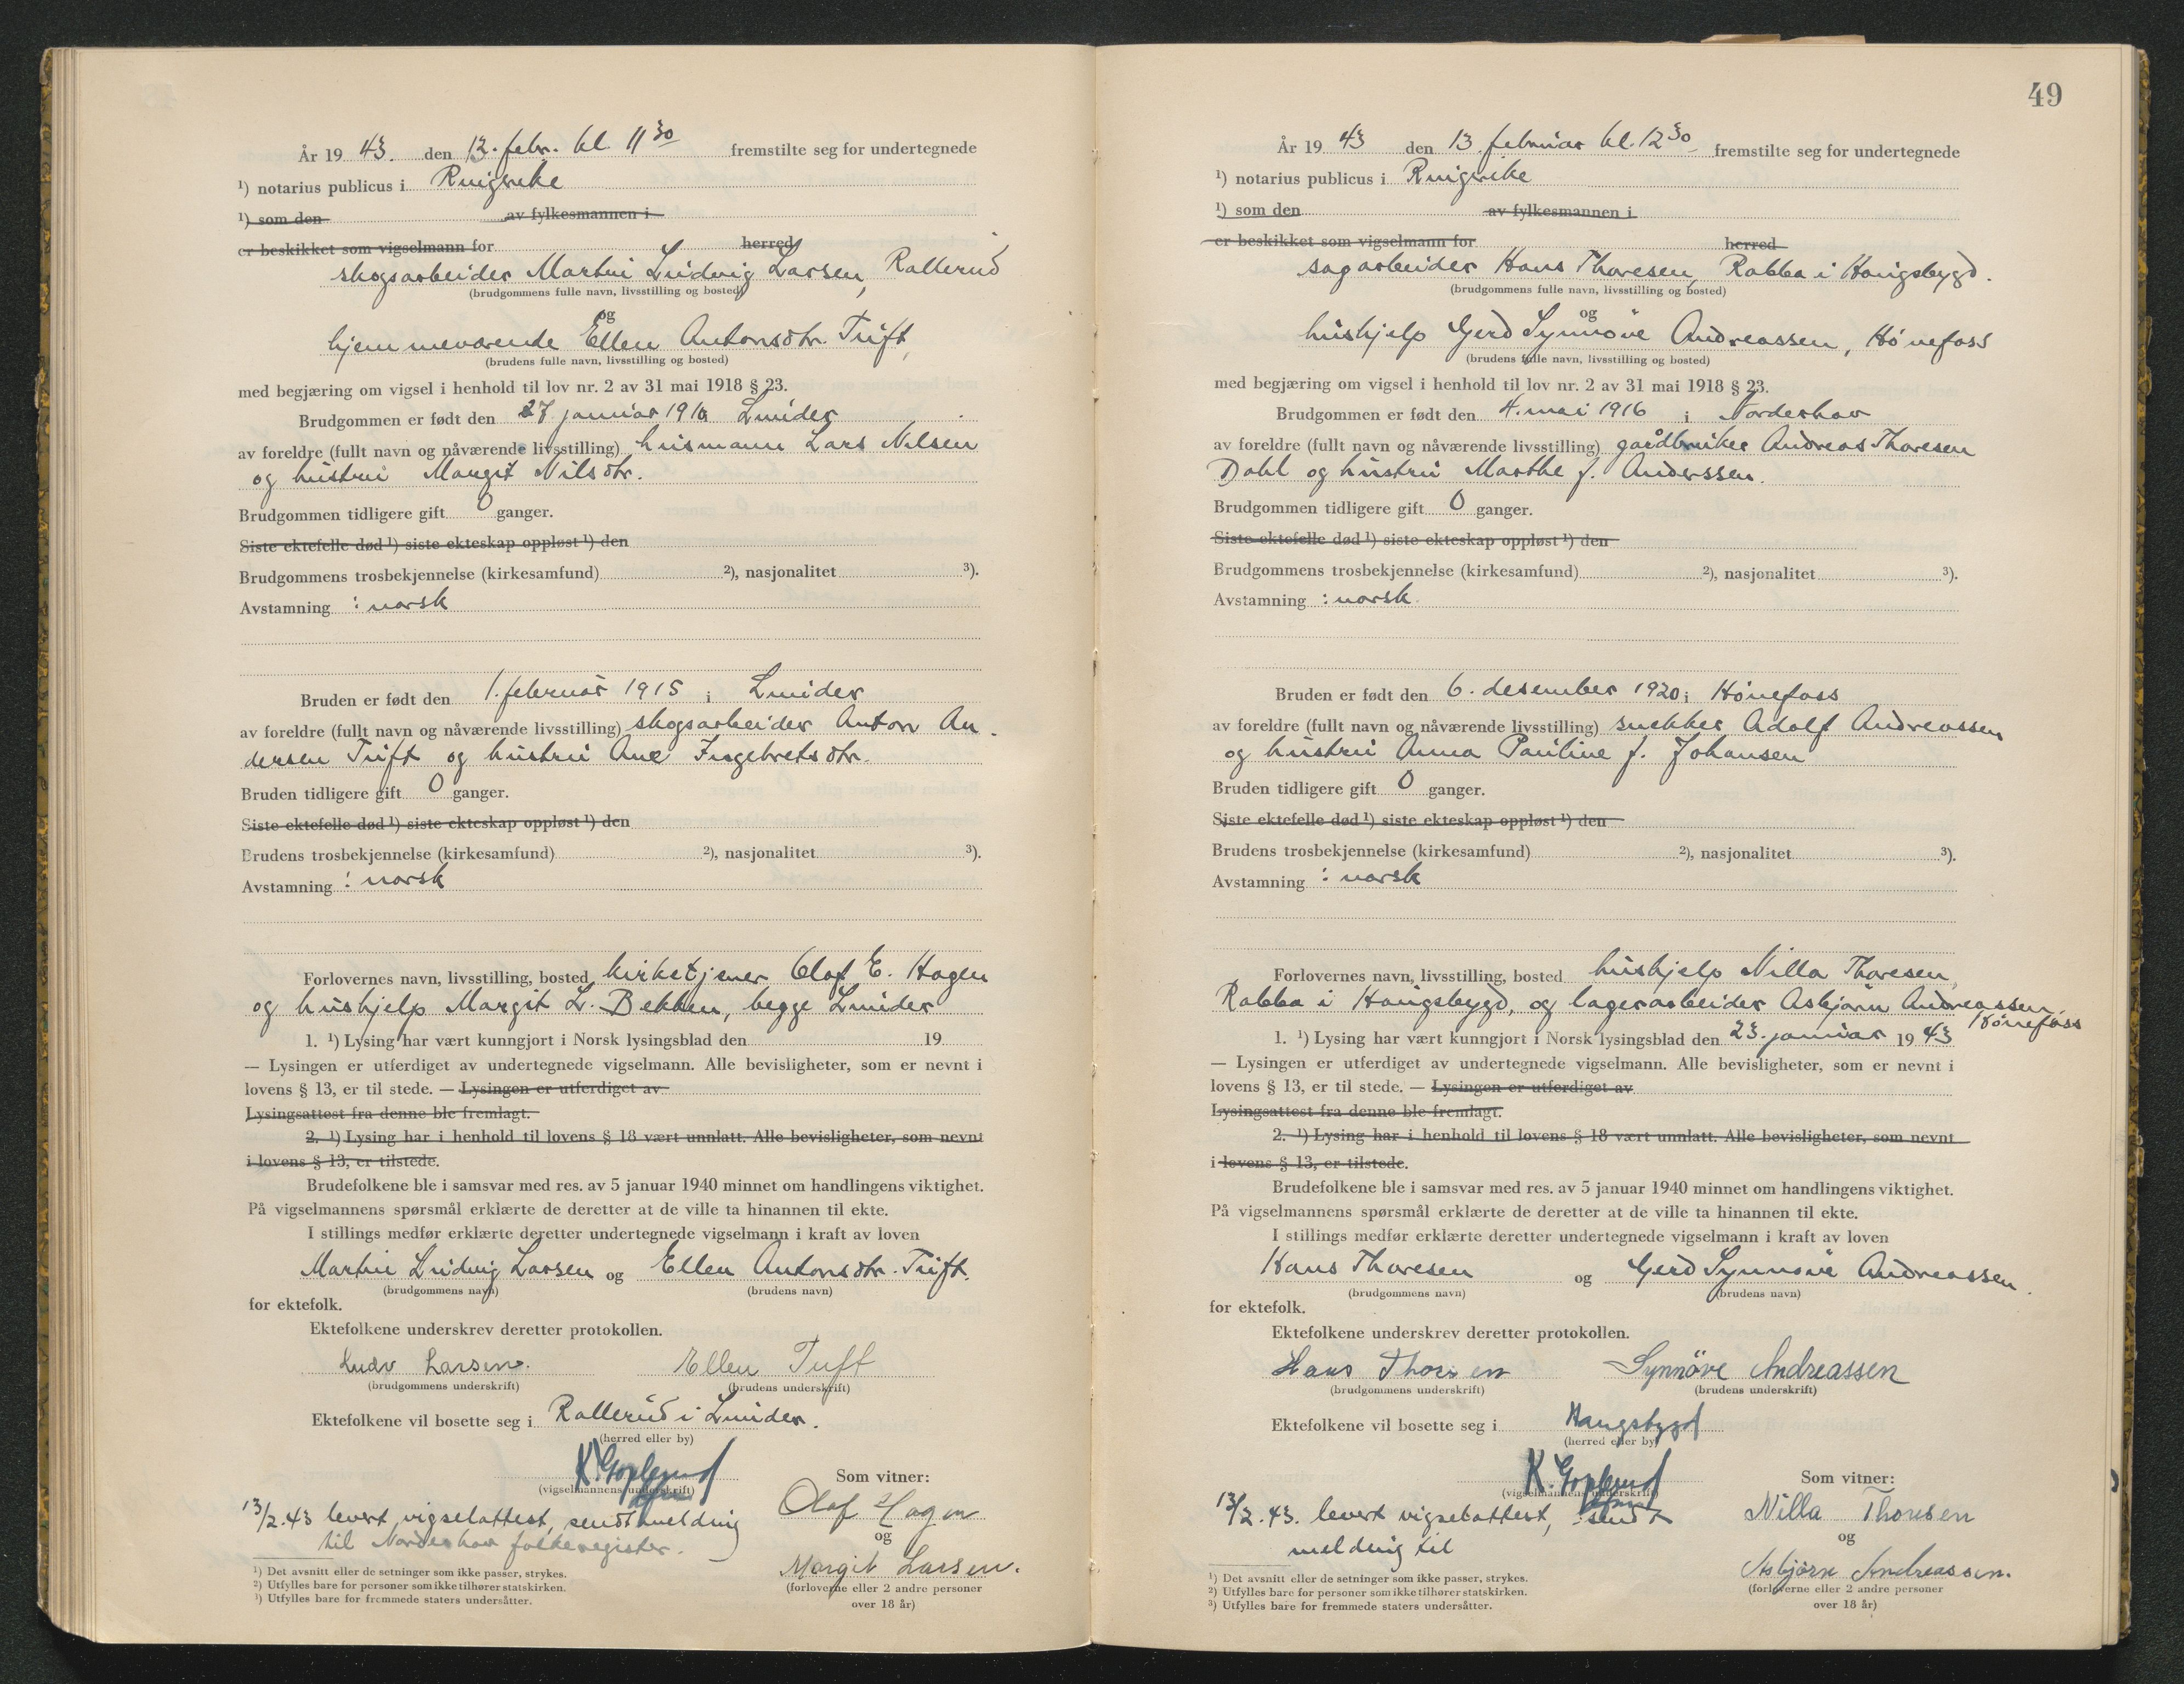 År 19 43. den 13. febr. kl. 11 30 fremstilte seg for undertegnede
1) notarius publicus i Ringerike
1) som den av fylkesmannen i
er beskikket som vigselmann for herred
skogsarbeider Martin Ludvig Larsen, Rallerud
(brudgommens fulle navn, livsstilling og bosted)
og
hjemmeværende Ellen Antonsdtr. Tuft,
(brudens fulle navn, livsstilling og bosted)
med begjæring om vigsel i henhold til lov nr. 2 av 31 mai 1918 § 23.
Brudgommen er født den 27. januar Lunder
av foreldre (fullt navn og nåværende livsstilling) husmann Lars Nilsen
og hustru Margit Nilsdtr.
Brudgommen tidligere gift 0 ganger.
Siste ektefelle død 1) siste ekteskap oppløst 1) den
Brudgommens trosbekjennelse (kirkesamfund) 2), nasjonalitet 3).
Avstamning : norsk
Bruden er født den 1. februar 1915 i Lunder
av foreldre (fullt navn og nåværende livsstilling) skogsarbeider Anton An-
dersen Tuft og hustru Ane Ingebretsdtr.
Bruden tidligere gift 0 ganger.
Siste ektefelle død 1) siste ekteskap oppløst 1) den
Brudens trosbekjennelse (kirkesamfund) 2), nasjonalitet 3).
Avstamning : norsk
Forlovernes navn, livsstilling, bosted kirketjener Olaf E. Hagen
og hushjelp Margit L. Bekken, begge Lunder
1. 1) Lysing har vært kunngjort i Norsk lysingsblad den 19
— Lysingen er utferdiget av undertegnede vigselmann. Alle bevisligheter, som er nevnt i
lovens § 13, er til stede. — Lysingen er utferdiget av
Lysingsattest fra denne ble fremlagt.
2. 1) Lysing har i henhold til lovens § 18 vært unnlatt. Alle bevisligheter, som nevnt
i lovens § 13, er tilstede.
Brudefolkene ble i samsvar med res. av 5 januar 1940 minnet om handlingens viktighet.
På vigselmannens spørsmål erklærte de deretter at de ville ta hinannen til ekte.
I stillings medfør erklærte deretter undertegnede vigselmann i kraft av loven
Martin Ludvig Larsen og Ellen Antonsdtr. Tuft.
(brudgommens navn) (brudens navn)
for ektefolk.
Ektefolkene underskrev deretter protokollen.
Ludv Larsen. Ellen Tuft
(brudgommens underskrift) (brudens underskrift)
Ektefolkene vil bosette seg i Rallerud i Lunder.
(herred eller by)
K. Goplerud
(vigselmannens underskrift)
Som vitner:
Olaf Hagen
og
Margit Larsen.
(forloverne eller 2 andre personer
over 18 år)
13/2.43 levert vigselattest, sendt melding
til Norderhov folkeregister.
1) Det avsnitt eller de setninger som ikke passer, strykes.
2) Utfylles bare for personer som ikke tilhører statskirken.
3) Utfylles bare for fremmede staters undersåtter.
49
År 19 43 den 13. februar kl. 12 30 fremstilte seg for undertegnede
1) notarius publicus i Ringerike
1) som den av fylkesmannen i
er beskikket som vigselmann for herred
sagarbeider Hans Thoresen, Rabba i Haugsbygd.
(brudgommens fulle navn, livsstilling og bosted)
og
hushjelp Gerd Synnøve Andreassen, Hønefoss
(brudens fulle navn, livsstilling og bosted)
med begjæring om vigsel i henhold til lov nr. 2 av 31 mai 1918 § 23.
Brudgommen er født den 4. mai 1916 i Norderhov
av foreldre (fullt navn og nåværende livsstilling) gårdbruker Andreas Thoresen
Dahl og hustru Marthe f. Anderssen.
Brudgommen tidligere gift 0 ganger.
Siste ektefelle død 1) siste ekteskap oppløst 1) den
Brudgommens trosbekjennelse (kirkesamfund) 2), nasjonalitet 3).
Avstamning : norsk.
Bruden er født den 6. desember 1920 i Hønefoss
av foreldre (fullt navn og nåværende livsstilling) snekker Adolf Andreassen
og hustru Anna Pauline f. Johansen
Bruden tidligere gift 0 ganger.
Siste ektefelle død 1) siste ekteskap oppløst 1) den
Brudens trosbekjennelse (kirkesamfund) 2), nasjonalitet 3).
Avstamning : norsk
Forlovernes navn, livsstilling, bosted hushjelp Nilla Thoresen,
Rabba i Haugsbygd, og lagerarbeider Asbjørn Andreassen,
Hønefoss
1. 1) Lysing har vært kunngjort i Norsk lysingsblad den 23. januar 19 43
— Lysingen er utferdiget av undertegnede vigselmann. Alle bevisligheter, som er nevnt i
lovens § 13, er til stede. — Lysingen er utferdiget av
Lysingsattest fra denne ble fremlagt.
2. 1) Lysing har i henhold til lovens § 18 vært unnlatt. Alle bevisligheter, som nevnt
i lovens § 13, er tilstede.
Brudefolkene ble i samsvar med res. av 5 januar 1940 minnet om handlingens viktighet.
På vigselmannens spørsmål erklærte de deretter at de ville ta hinannen til ekte.
I stillings medfør erklærte deretter undertegnede vigselmann i kraft av loven
Hans Thoresen og Gerd Synnøve Andreassen.
(brudgommens navn) (brudens navn)
for ektefolk.
Ektefolkene underskrev deretter protokollen.
Hans Thoresen Synnöve Andreassen
(brudgommens underskrift) (brudens underskrift)
Ektefolkene vil bosette seg i Haugsbygd
(herred eller by)
K. Goplerud
(vigselmannens underskrift)
Som vitner:
Nilla Thoresen
og
Asbjørn Andreassen.
(forloverne eller 2 andre personer
over 18 år)
13/2.43. levert vigselattest, sendt
melding til
1) Det avsnitt eller de setninger som ikke passer, strykes.
2) Utfylles bare for personer som ikke tilhører statskirken.
3) Utfylles bare for fremmede staters undersåtter.